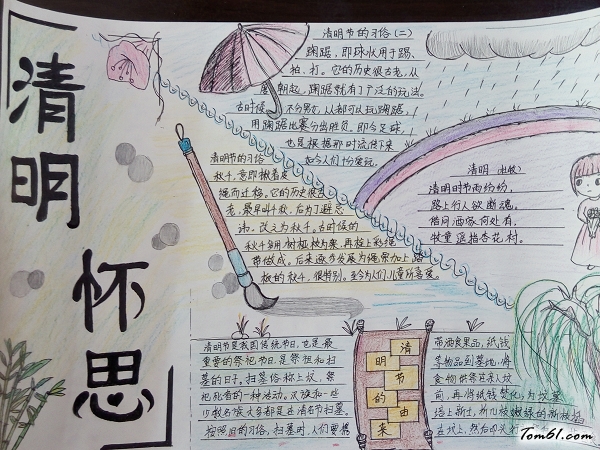 清明
怀思
清明节的习俗(二)
蹴踘,即球状用于踢、
拍、打。它的历史很古老,从
朝起,蹴踘就有了广泛的玩法。
古时候,不分男女,人人都可以玩蹴踘,
用蹴踘比赛分出胜负,即今足球,
也是根据那时流传下来
如今人们十分爱玩。
清明节的习俗
秋千,意即揪着皮
绳而迁移。它的历史很古
老,最早叫千秋,后为了避忌
讳,改之为秋千。古时候的
秋千多用树桠枝为架,再拴上彩绳
带做成。后来逐步发展为绳索加上踏
板的秋千,很特别。至今为人们儿童所喜爱。
清明
清明时节雨纷纷,
路上行人欲断魂。
借问酒家何处有,
牧童遥指杏花村。
清明节是我国传统节日,也是最
重要的祭祀节日,是祭祖和扫
墓的日子。扫墓俗称上坟,祭
祀死者的一种活动。汉族和一些
少数名族大多都是在清名节扫墓。
按照旧的习俗,扫墓时,人们要携
清明节的由来
带酒食果品、纸钱
等物品到墓地,将
食物供祭在亲人坟
前,再将纸钱焚化,为坟墓
培上新土,折几枝嫩绿的新枝插
在坟上,然后叩头
Tom61.com